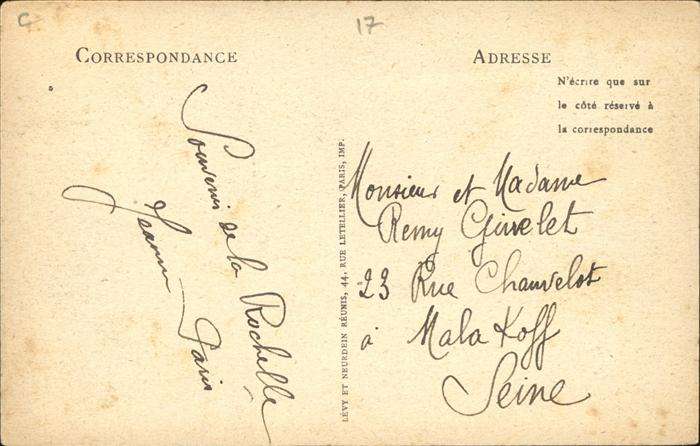 C
17
CORRESPONDANCE
Souvenir de la Rochelle
Jeanne Paris
LÉVY ET NEURDEIN RÉUNIS, 44, RUE LETELLIER, PARIS, IMP.
ADRESSE
N'écrire que sur
le côté réservé à
la correspondance
Monsieur et Madame
Remy Givelet
23 Rue Chauvelot
à Malakoff
Seine